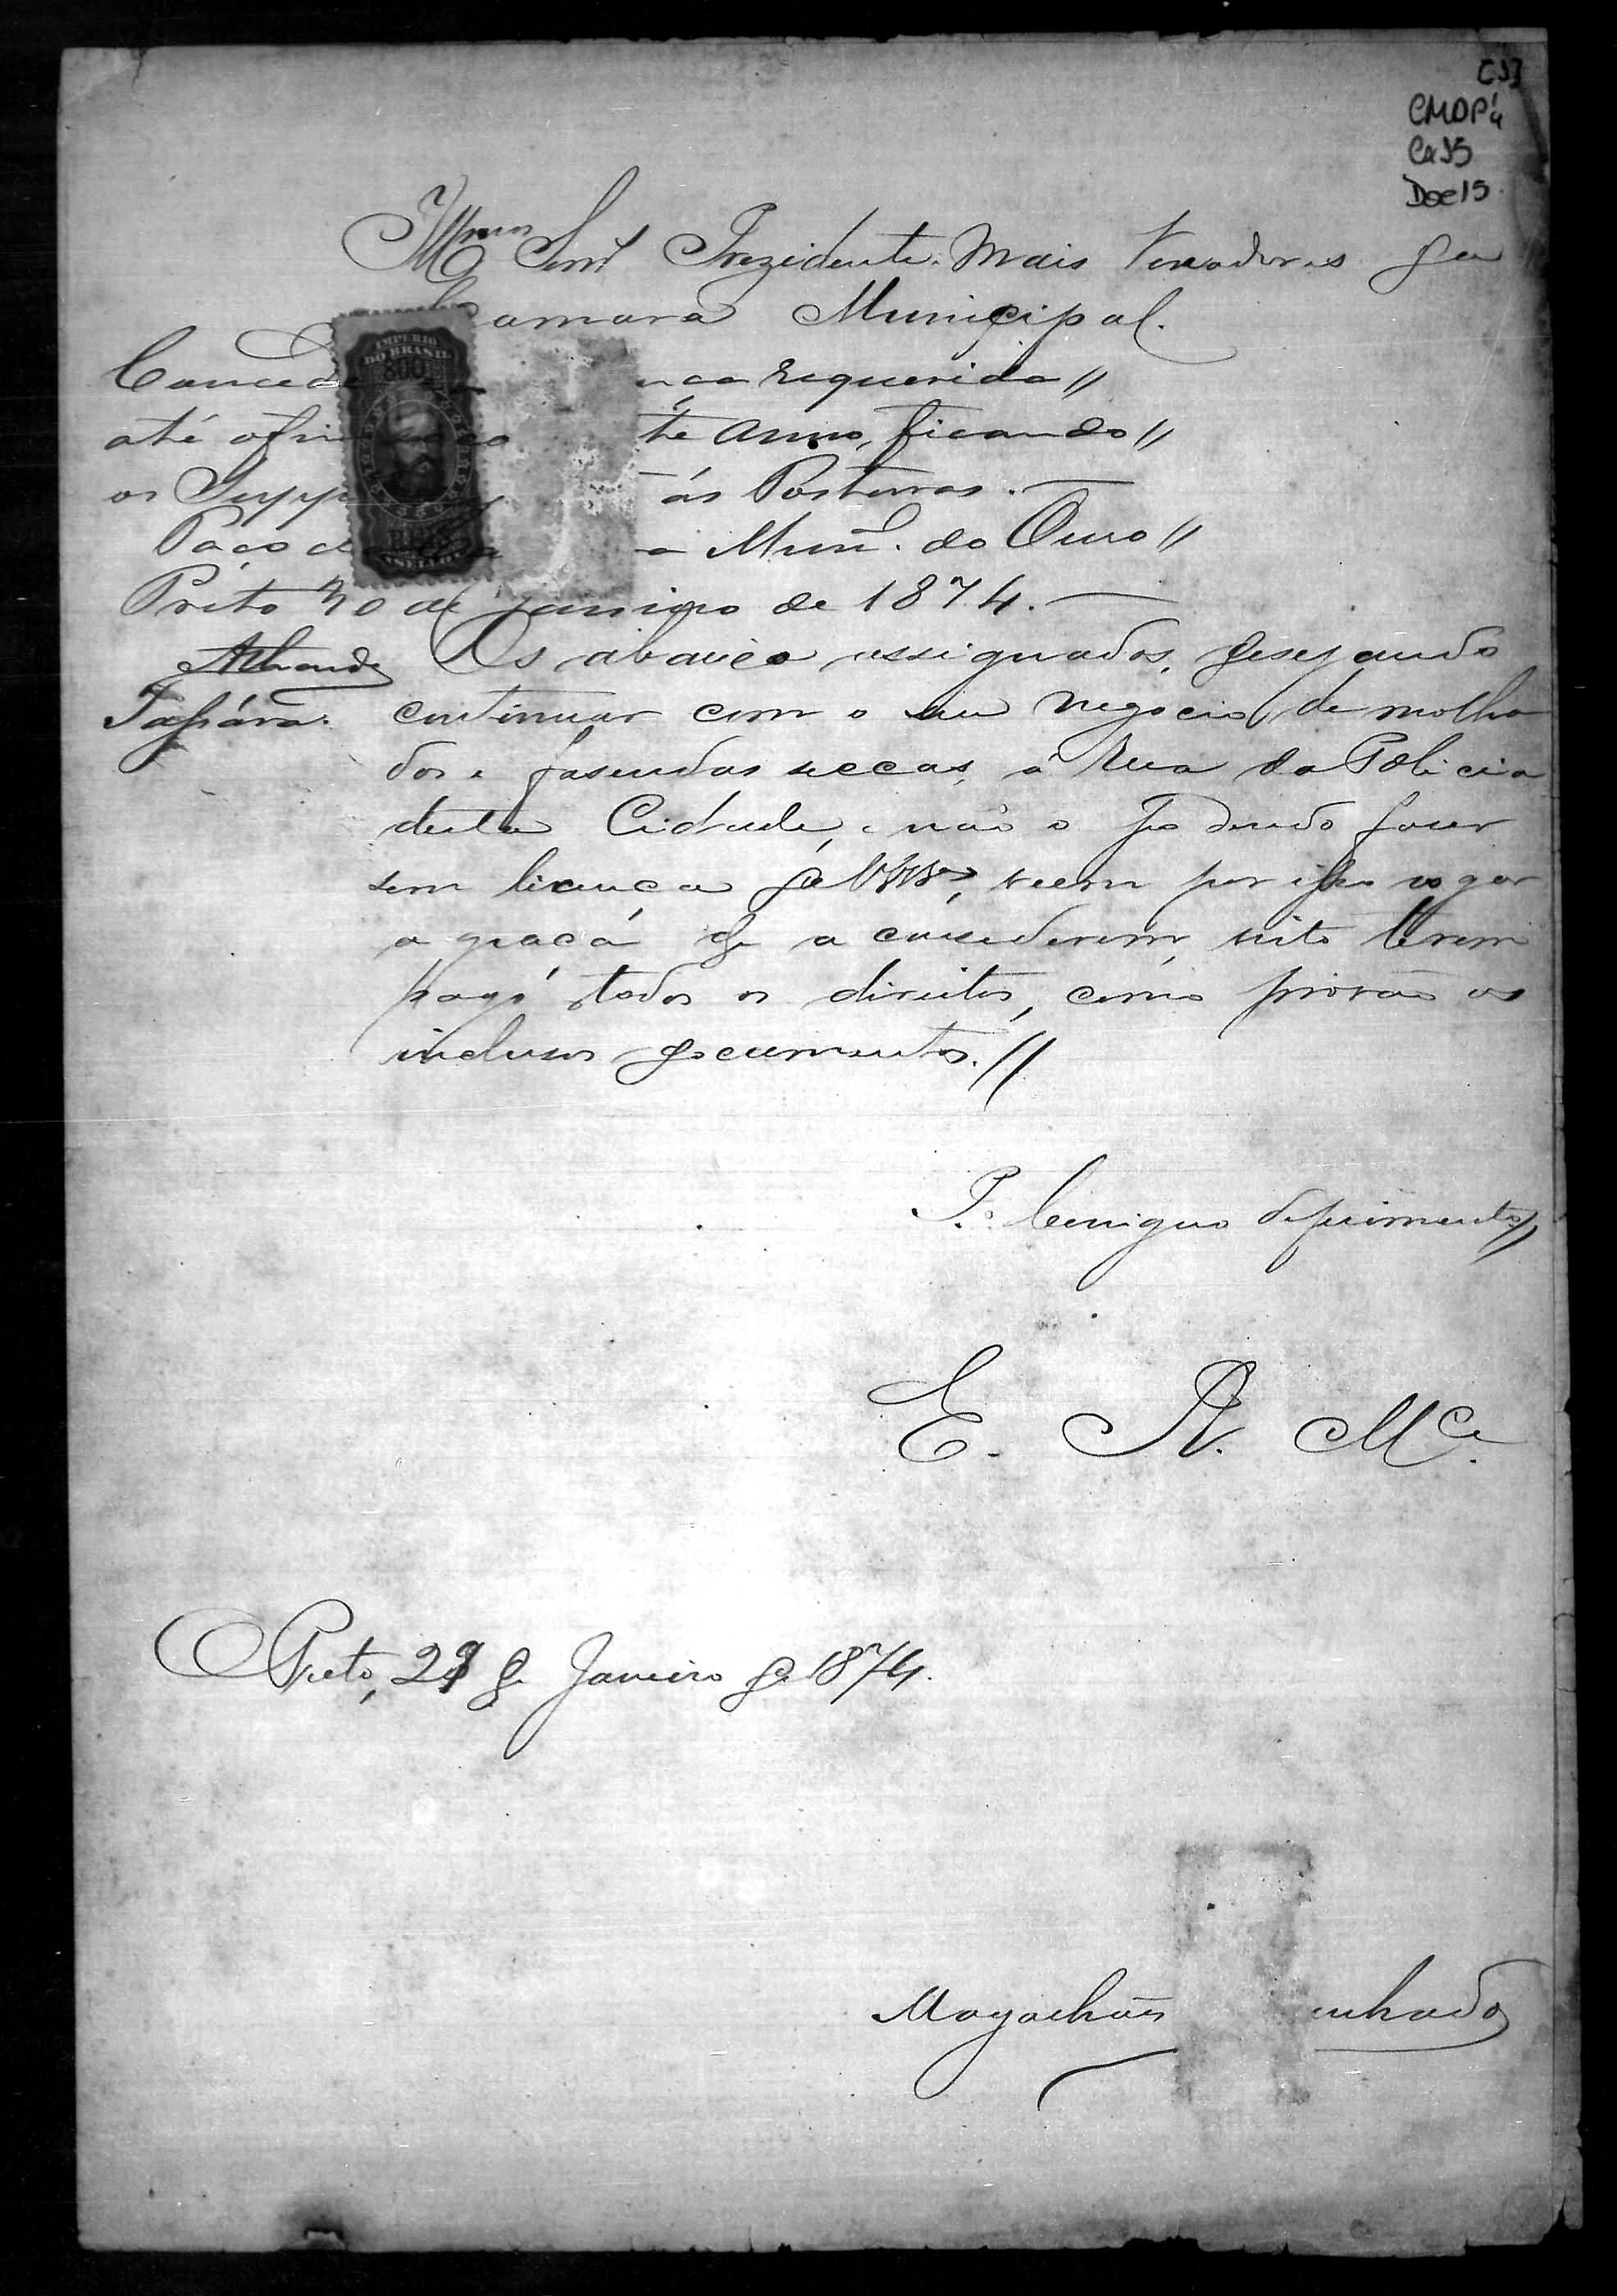 CMOP
Cx 35
Doc 15
Illmos Snr Prezidente. Mais Vereadores da
Camara Municipal.
IMPERIO
DO BRASIL
Conced nça requerida //
até o fim te anno, ficando //
os Supp ás Posturas. —
Paço d a Mun.l do Ouro //
Preto 30 de Janeiro de 1874. —
Os abaixo assignados, desejando
continuar com o seu negocio de molha
dos e fasendas seccas, á Rua da Policia
desta Cidade, e não o podendo fazer
sem licença de VVSas, veem por isso rogar
a graça de a concederem, visto terem
pago todos os direitos, como provão os
inclusos documentos. //
P. benigno deferimento //
E. R. Mce.
OPreto, 29 de Janeiro de 1874.
Magalhães unhado